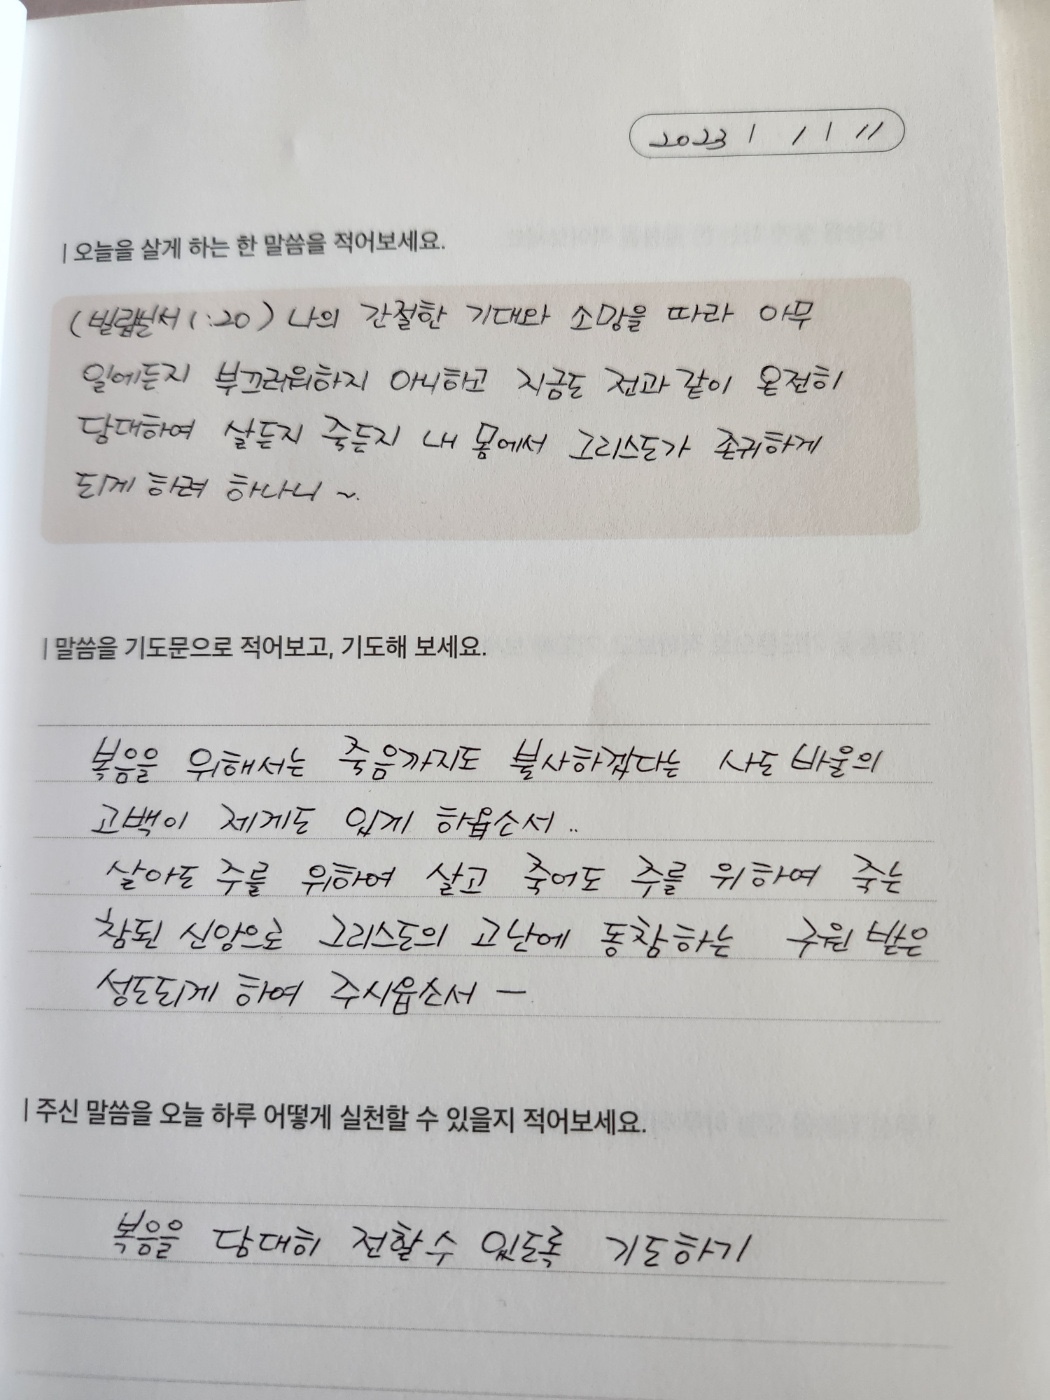 2023 | 1 | 11
| 오늘을 살게 하는 한 말씀을 적어보세요.
(빌립보서 1:20) 나의 간절한 기대와 소망을 따라 아무
일에든지 부끄러워하지 아니하고 지금도 전과 같이 온전히
담대하여 살든지 죽든지 내 몸에서 그리스도가 존귀하게
되게 하려 하나니 ~.
| 말씀을 기도문으로 적어보고, 기도해 보세요.
복음을 위해서는 죽음까지도 불사하겠다는 사도 바울의
고백이 제게도 있게 하옵소서 ..
살아도 주를 위하여 살고 죽어도 주를 위하여 죽는
참된 신앙으로 그리스도의 고난에 동참하는 구원 받은
성도되게 하여 주시옵소서 —
| 주신 말씀을 오늘 하루 어떻게 실천할 수 있을지 적어보세요.
복음을 담대히 전할 수 있도록 기도하기